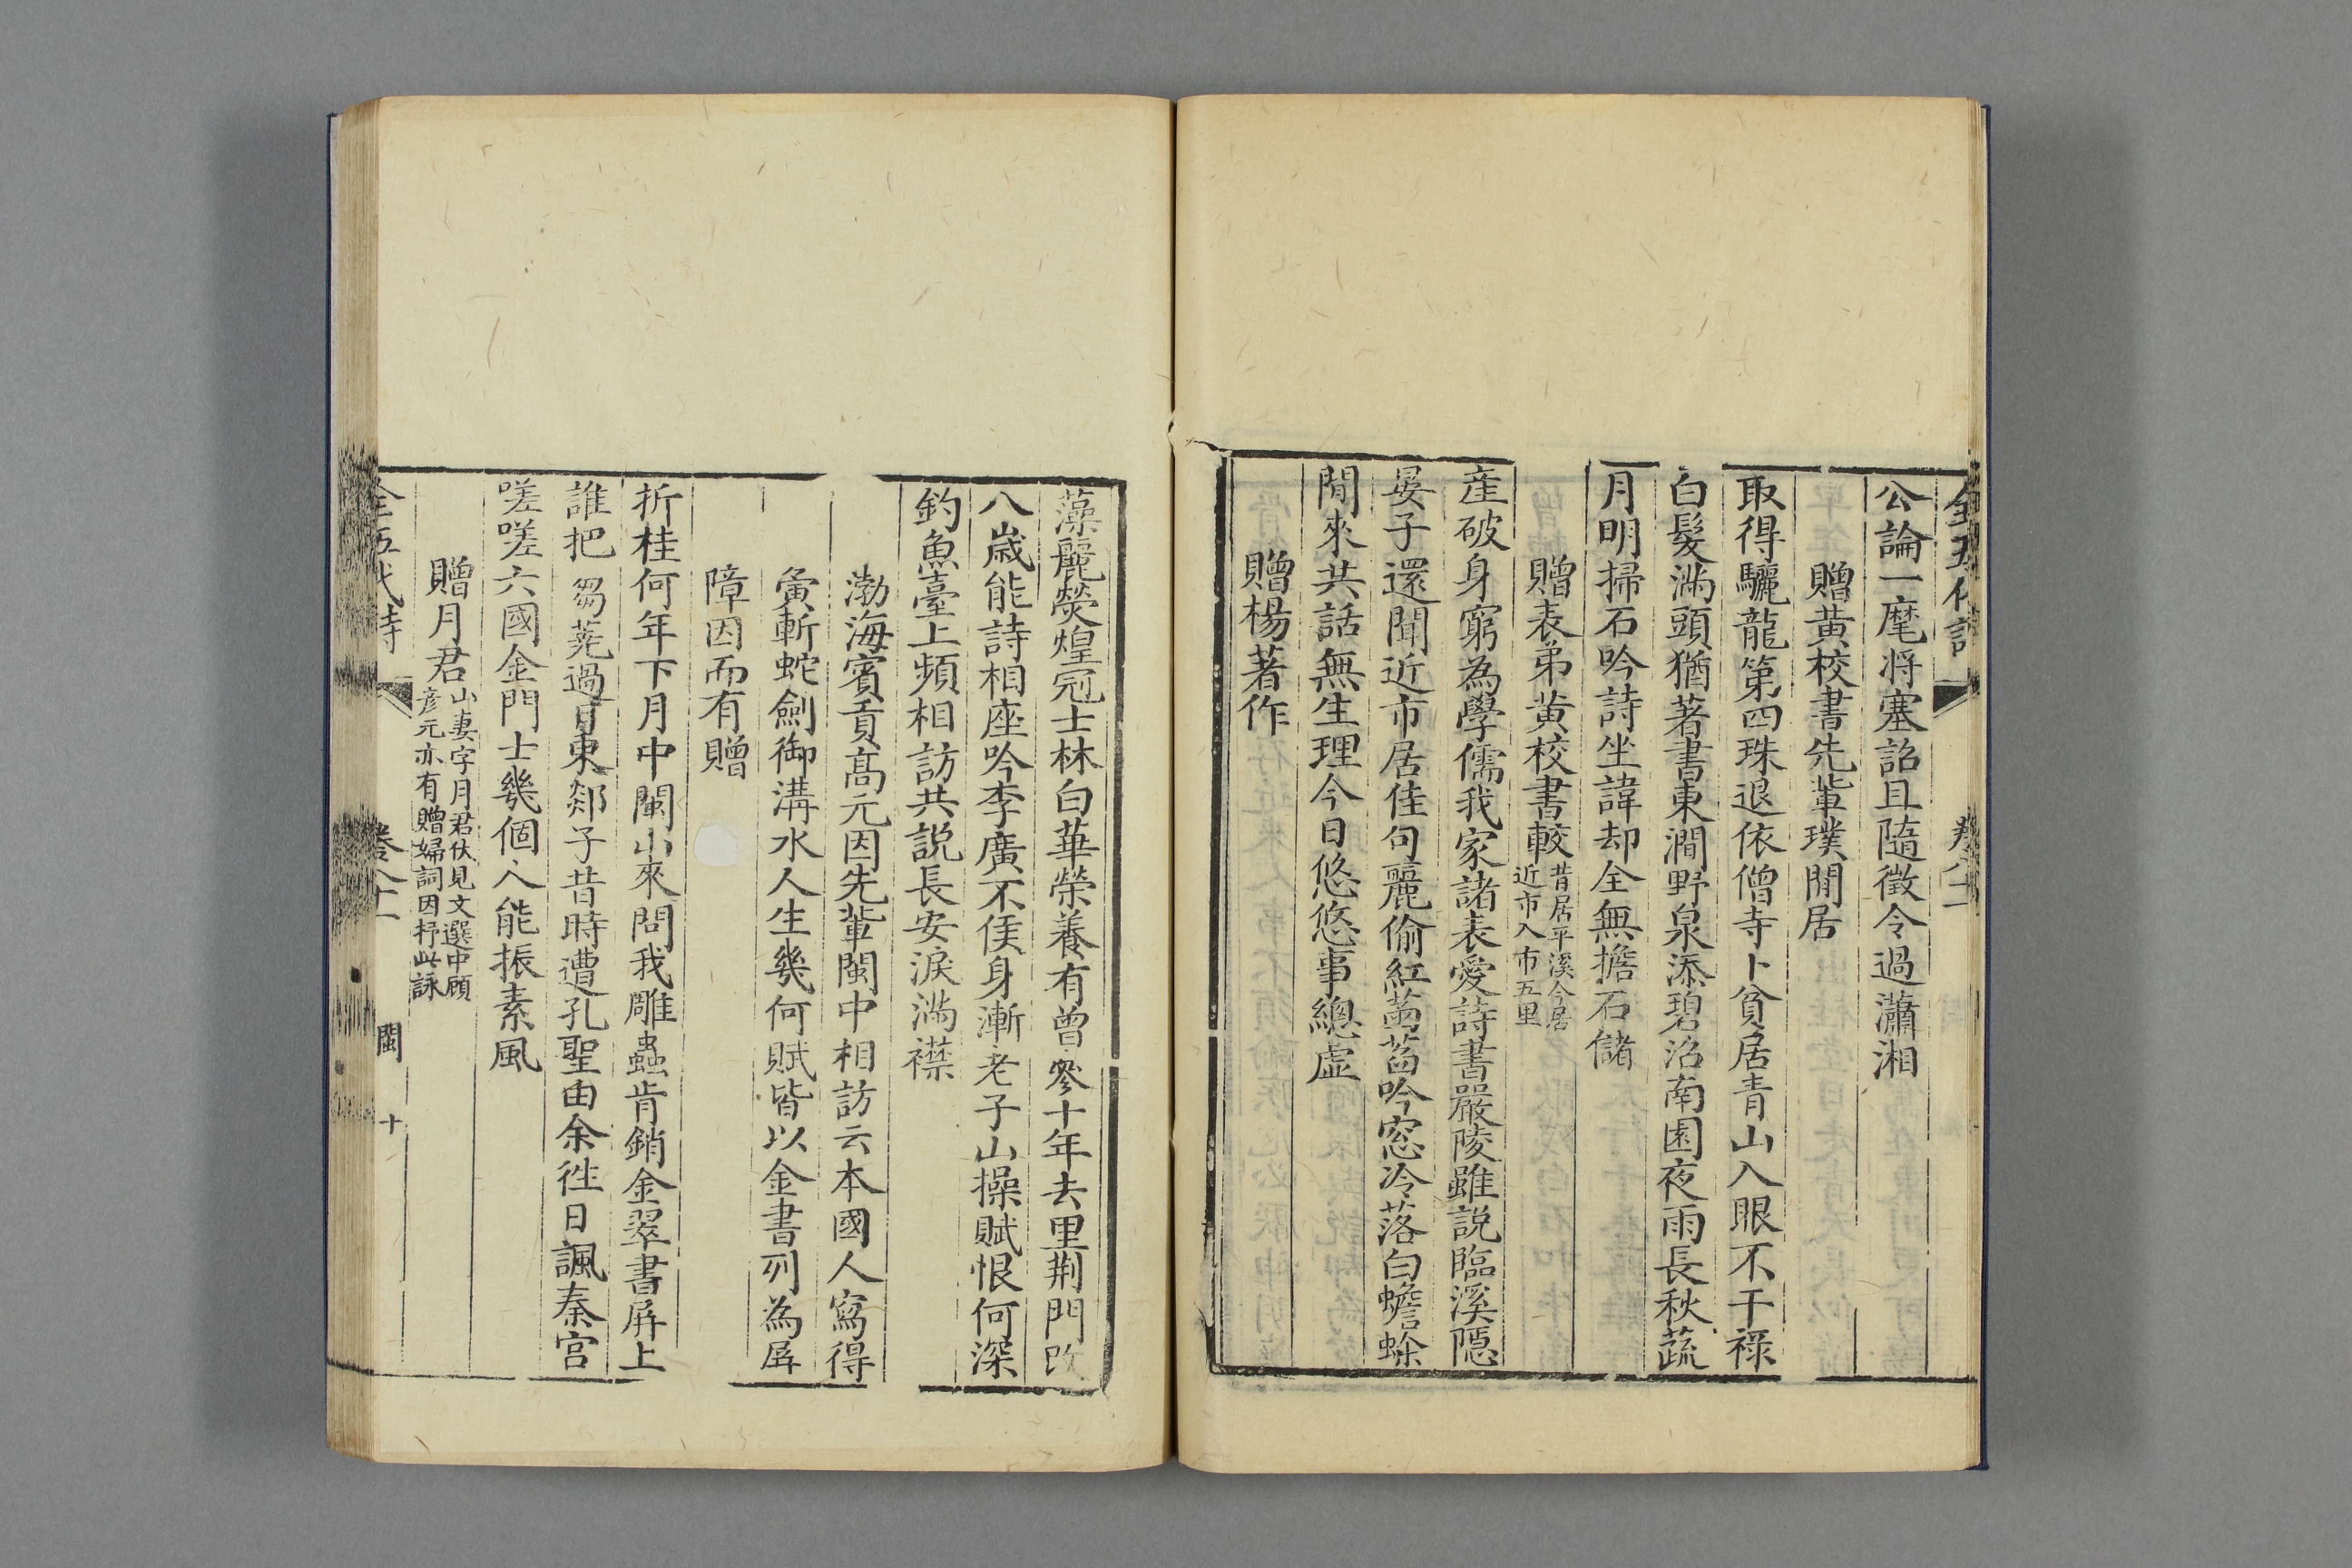 全五代詩 卷八十一
公論一麾将塞詔且隨徵令過瀟湘
贈黄校書先軰璞閒居
取得驪龍第四珠退依僧寺卜貧居青山入眼不干禄
白髪滿頭猶著書東澗野泉添碧沼南園夜雨長秋蔬
月明掃石吟詩坐諱却全無擔石儲
贈表弟黄校書輅
昔居平溪今居
近市入市五里
産破身窮為學儒我家諸表愛詩書嚴陵雖説臨溪隱
晏子還聞近市居佳句麗偷紅菡萏吟窓冷落白蟾蜍
閒來共話無生理今日悠悠事總虚
贈楊著作
藻麗熒煌冠士林白華榮養有曾參十年去里荆門改
八歲能詩相座吟李廣不侯身漸老子山操賦恨何深
釣魚臺上頻相訪共説長安淚滿襟
渤海賓貢高元因先輩閩中相訪云本國人寫得
夤斬蛇劍御溝水人生幾何賦皆以金書列為屏
障因而有贈
折桂何年下月中閩山來問我雕蟲肯銷金翠書屏上
誰把芻蕘過日東郯子昔時遭孔聖由余徃日諷秦宫
嗟嗟六國金門士幾個人能振素風
贈月君
山妻字月君伏見文選中顧
彦元亦有贈婦詞因抒此詠
全五代詩 卷八十一 閩 十